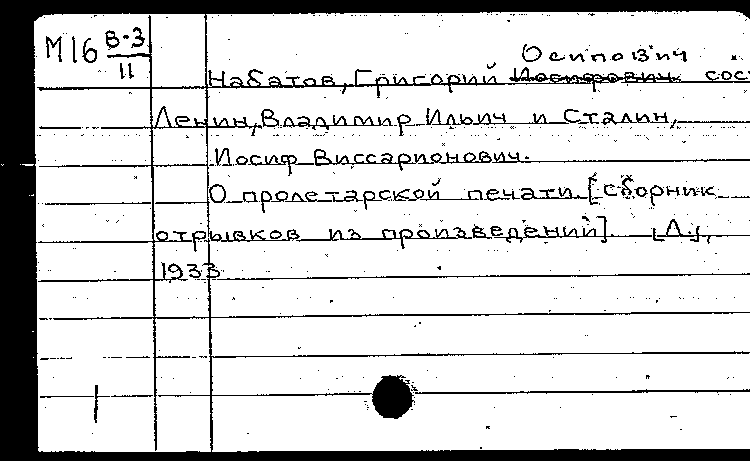 М16 В-3
11
Осипович
Набатов, Григорий Иосифович сос
Ленин, Владимир Ильич и Сталин,
Иосиф Виссарионович.
О пролетарской печати [сборник
отрывков из произведений]. [Л.],
1933